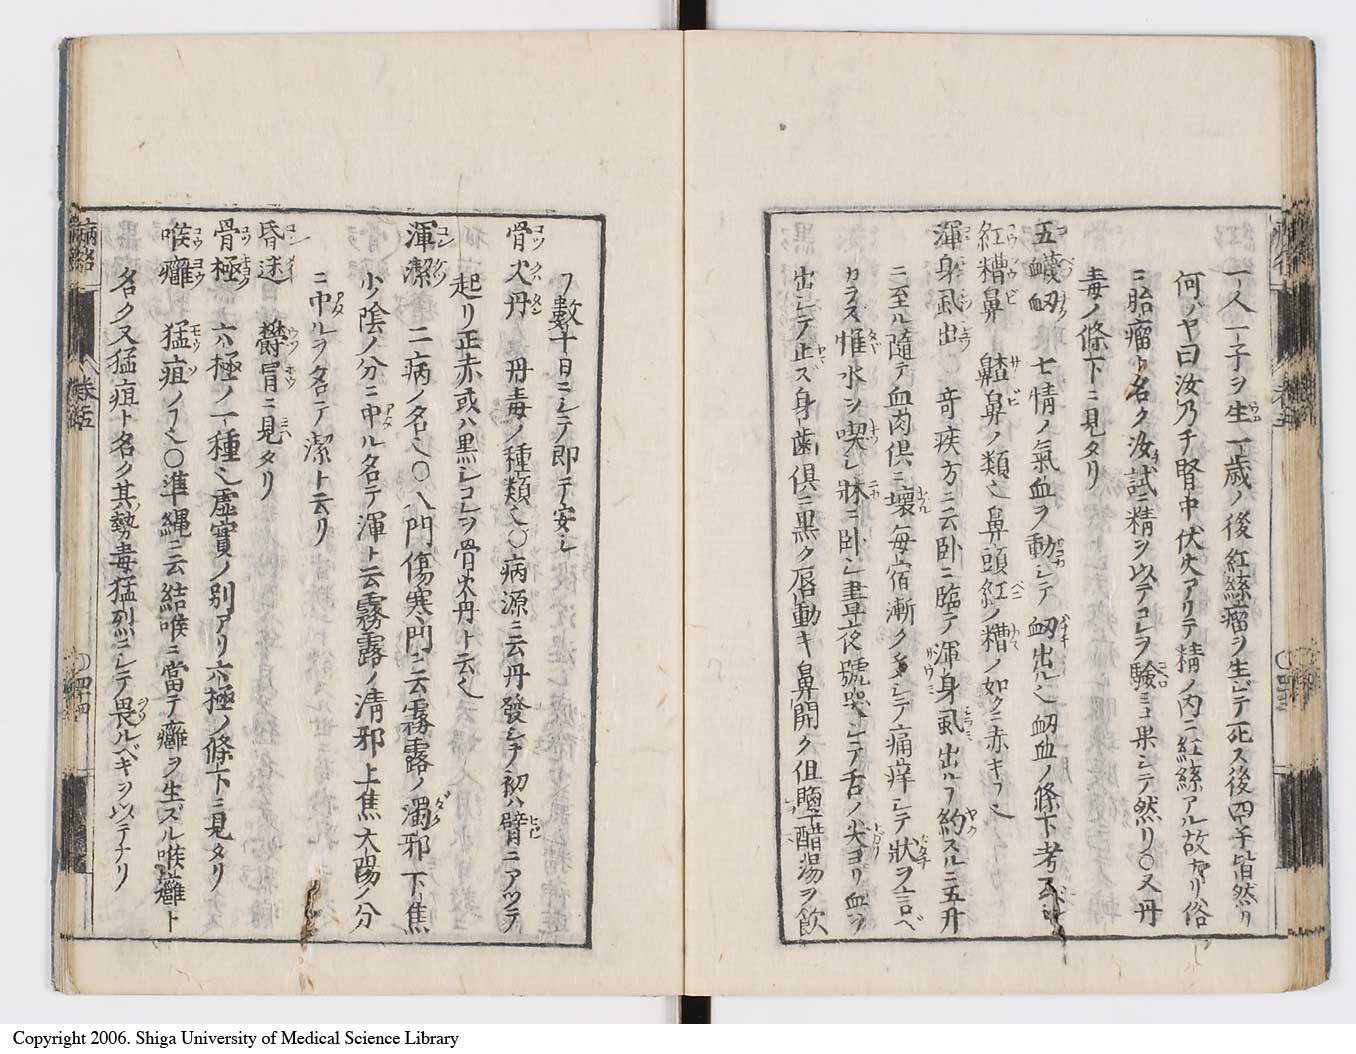 一人一子ヲ生一歳ノ後紅絲瘤ヲ生ジテ死ス後四子皆然リ
何ゾヤ曰汝乃チ腎中伏火アリテ精ノ内ニ紅絲アル故ナリ俗
ニ胎瘤ト名ク汝試ニ精ヲ以テコレヲ驗ミヨ果シテ然リ〇又丹
毒ノ條下ニ見タリ
五衊衂 七情ノ氣血ヲ動シテ衂出ル也衂血ノ條下考フベシ
紅糟鼻 齄鼻ノ類也鼻頭紅ノ糟ノ如クニ赤キフ也
渾身虱出 奇疾方ニ云卧ニ臨テ渾身虱出ルフ約スルニ五升
ニ至ル隨テ血肉倶ニ壞毎宿漸ク多シテ痛痒シテ狀ヲ言ベ
カラス惟水ヲ喫シ牀ニ卧シ晝夜號哭シテ舌ノ尖ヨリ血ヲ
出シテ止ズ身歯倶ニ黒ク唇動キ鼻開ク但鹽醋湯ヲ飲
フ數十日ニシテ即チ安シ
骨火丹 丹毒ノ種類也〇病源ニ云丹發シテ初ハ臂ニアツテ
起リ正赤或ハ黒シコレヲ骨火丹ト云也
渾潔 二病ノ名也〇八門傷寒門ニ云霧露ノ濁邪下焦
少陰ノ分ニ中ル名テ渾ト云霧露ノ清邪上焦太陽ノ分
ニ中ルヲ名テ潔ト云リ
昏迷 欝冒ニ見タリ
骨極 六極ノ一種也虚實ノ別アリ六極ノ條下ニ見タリ
喉癰 猛疽ノフ也〇準縄ニ云結喉ニ當テ癰ヲ生ズル喉癰ト
名クス猛疽ト名ク其勢毒猛烈ニシテ畏ルベキヲ以テナリ
卷五
〇四十四
Copyright 2006. Shiga University of Medical Science Library